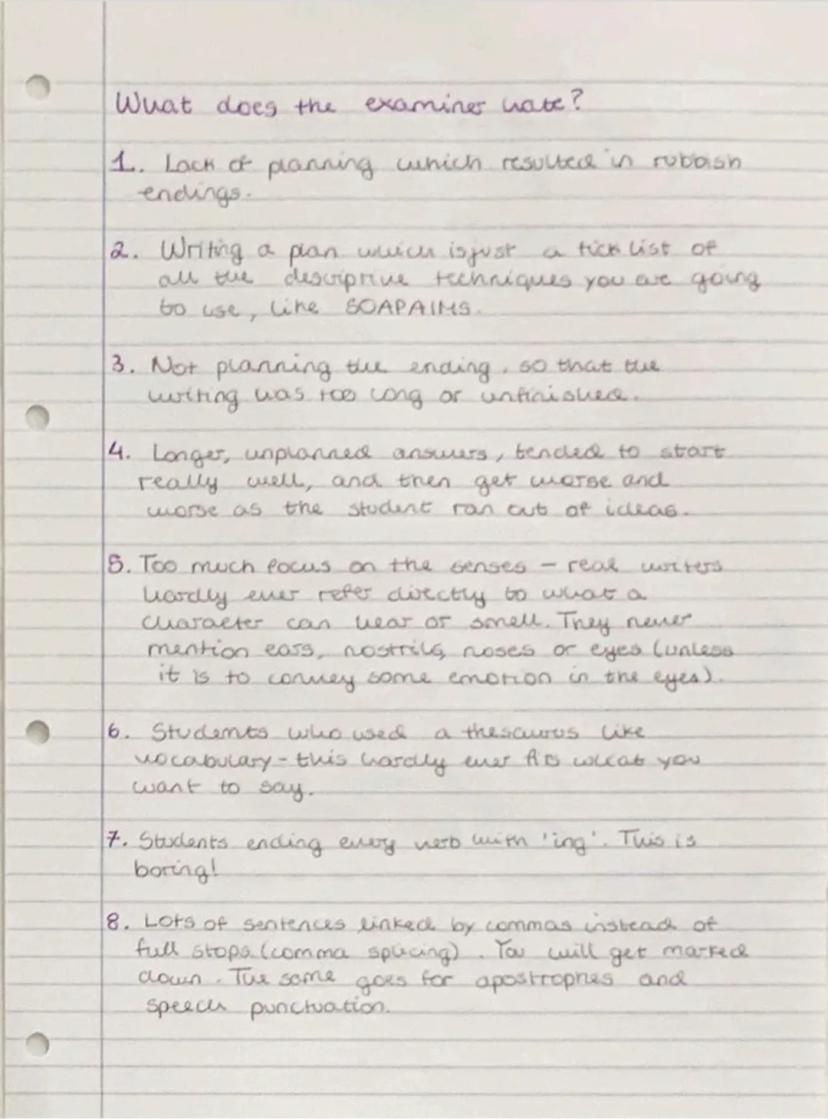 What does the examiner hate?
1. Lack of planning which resulted in rubbish
endings.
2. Writing a plan which is just a tick list of
all the descriptive techniques you are going
to use, like SOAPAIMS.
3. Not planning the ending, so that the
writing was too long or unfinished.
4. Longer, unplanned answers, tended to start
really well, and then get worse and
worse as the student ran out of ideas.
5. Too much focus on the senses - real writers
hardly ever refer directly to what a
character can hear or smell. They never
mention ears, nostrils, noses or eyes (unless
it is to convey some emotion in the eyes).
6. Students who used a thesaurus like
vocabulary - this hardly ever fits what you
want to say.
7. Students ending every verb with 'ing'. This is
boring!
8. Lots of sentences linked by commas instead of
full stops (comma splicing). You will get marked
down. The same goes for apostrophes and
speech punctuation.